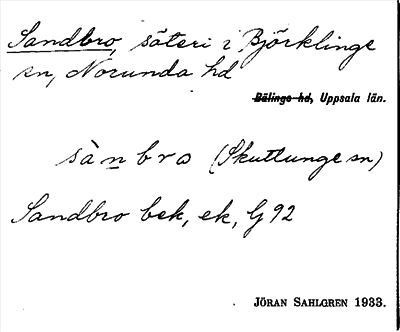 Sandbro, säteri i Björklinge
sn, Norunda hd
Bälinge hd, Uppsala län.
sànbro (Skuttunge sn)
Sandbro bek, ek, G 92
JÖRAN SAHLGREN 1933.